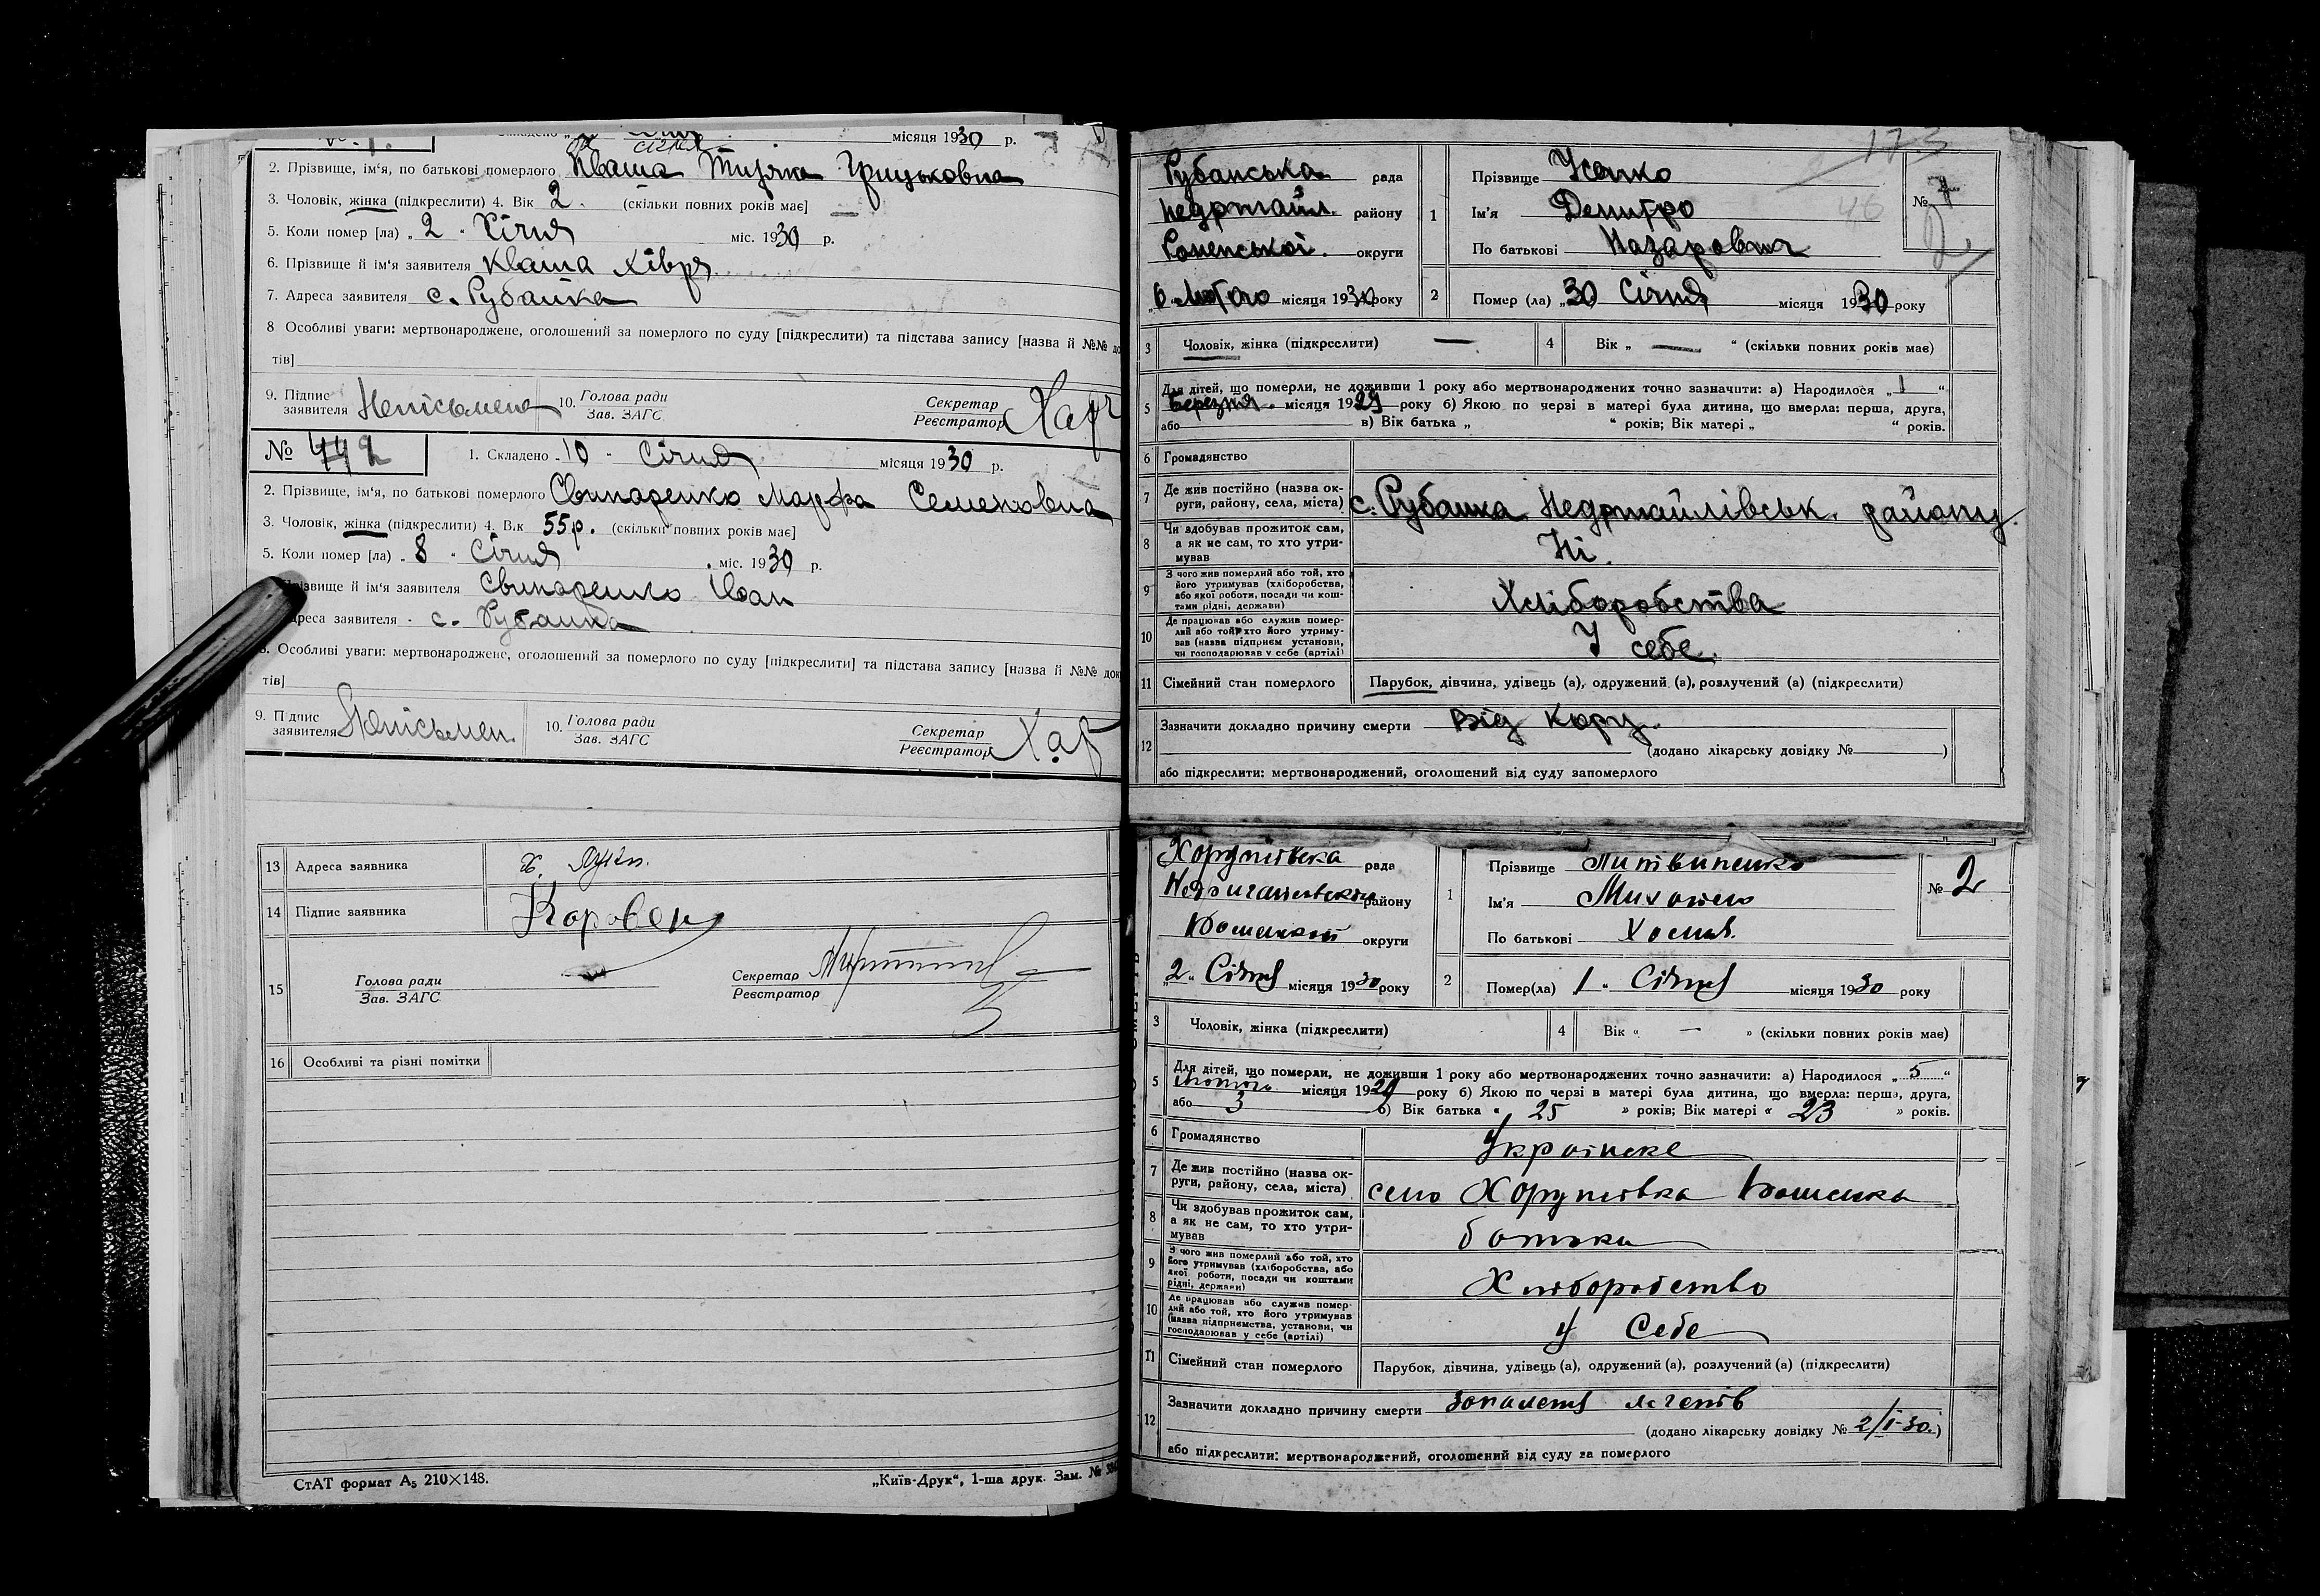 місяця 1930 р.
2. Прізвище, ім'я, по батькові померлого Кваша Грицьковна
3. Чоловік, жінка (підкреслити) 4. Вік 2. (скільки повних років має]
5. Коли помер [ла) „ 2 " Січня міс. 1930 р.
6. Прізвище й ім'я заявителя Кваша Хівря
7. Адреса заявителя с. Рубанка
8 Особливі уваги: мертвонароджене, оголошений за померлого по суду [підкреслити) та підстава запису [назва й №№
тів]
9. Підпис заявителя Неписьмена 10. Голова ради Зав. ЗАГС Секретар Реєстратор
№ 1. Складено „ 10 " Січня місяця 1930 р.
2. Прізвище, ім'я, по батькові померлого Свинаренко Марфа Семеновна
3. Чоловік, жінка (підкреслити) 4. Вік 55р. (скільки повних років має]
5. Коли помер [ла) „ 8 " Січня міс. 1930 р.
Прізвище й ім'я заявителя Свинаренко Іван
Адреса заявителя с. Рубанка
8. Особливі уваги: мертвонароджене, оголошений за померлого по суду [підкреслити] та підстава запису [назва й №№ док
тів]
9. Підпис заявителя Неписьмен. 10. Голова ради Зав. ЗАГС Секретар Реєстратор
13 Адреса заявника
14 Підпис заявника
15 Голова ради Зав. ЗАГС Секретар Реєстратор
16 Особливі та різні помітки
СтАТ формат А5 210×148. „Київ-Друк“, 1-ша друк. Зам. №
173
Рубанська рада
Недригайл. району
Роменської. округи
6 Лютого місяця 1930 року
1 Прізвище Усенко
Ім'я Демитро
По батькові Назарович
46
№
2 Помер (ла) „30 Січня місяця 1930 року
3 Чоловік, жінка (підкреслити) — 4 Вік „ — “ (скільки повних років має)
5 Для дітей, що померли, не доживши 1 року або мертвонароджених точно зазначити: а) Народилося „ 1 “
Березня місяця 1929 року б) Якою по черзі в матері була дитина, що вмерла: перша, друга,
або в) Вік батька „ “ років; Вік матері „ “ років.
6 Громадянство
7 Де жив постійно (назва округи, району, села, міста) с. Рубанка Недригайлівськ. району
8 Чи здобував прожиток сам, а як не сам, то хто утримував Ні.
9 З чого жив померлий або той, хто його утримував (хліборобства, або якої роботи, посади чи коштами рідні, держави) Хліборобства
10 Де працював або служив померлий або той, хто його утримував (назва підприєм установи, чи господарював у себе (артілі) У себе.
11 Сімейний стан померлого Парубок, дівчина, удівець (а), одружений (а), розлучений (а) (підкреслити)
12 Зазначити докладно причину смерти Від кору.
(додано лікарську довідку № )
або підкреслити: мертвонароджений, оголошений від суду запомерлого
рада
району
округи
„2“ Січня місяця 1930 року
1 Прізвище Литвиненко
Ім'я Михайло
По батькові
№ 2
2 Помер(ла) 1 " Січня місяця 1930 року
3 Чоловік, жінка (підкреслити) 4 Вік « — » (скільки повних років має)
5 Для дітей, що померли, не доживши 1 року або мертвонароджених точно зазначити: а) Народилося „ 5 “
місяця 1929 року б) Якою по черзі в матері була дитина, що вмерла: перша, друга,
або 3 в) Вік батька « 25 » років; Вік матері « 23 » років.
6 Громадянство Украінске
7 Де жив постійно (назва округи, району, села, міста) село Хоружівка
8 Чи здобував прожиток сам, а як не сам, то хто утримував батьки
9 З чого жив померлий або той, хто його утримував (хліборобства, або якої роботи, посади чи коштами рідні, держави) Хліборобство
10 Де працював або служив померлий або той, хто його утримував (назва підприємства, установи, чи господарював у себе (артілі) у Себе
11 Сімейний стан померлого Парубок, дівчина, удівець (а), одружений (а), розлучений (а) (підкреслити)
12 Зазначити докладно причину смерти запалення легенів
(додано лікарську довідку № 2/І-30.)
або підкреслити: мертвонароджений, оголошений від суду за померлого